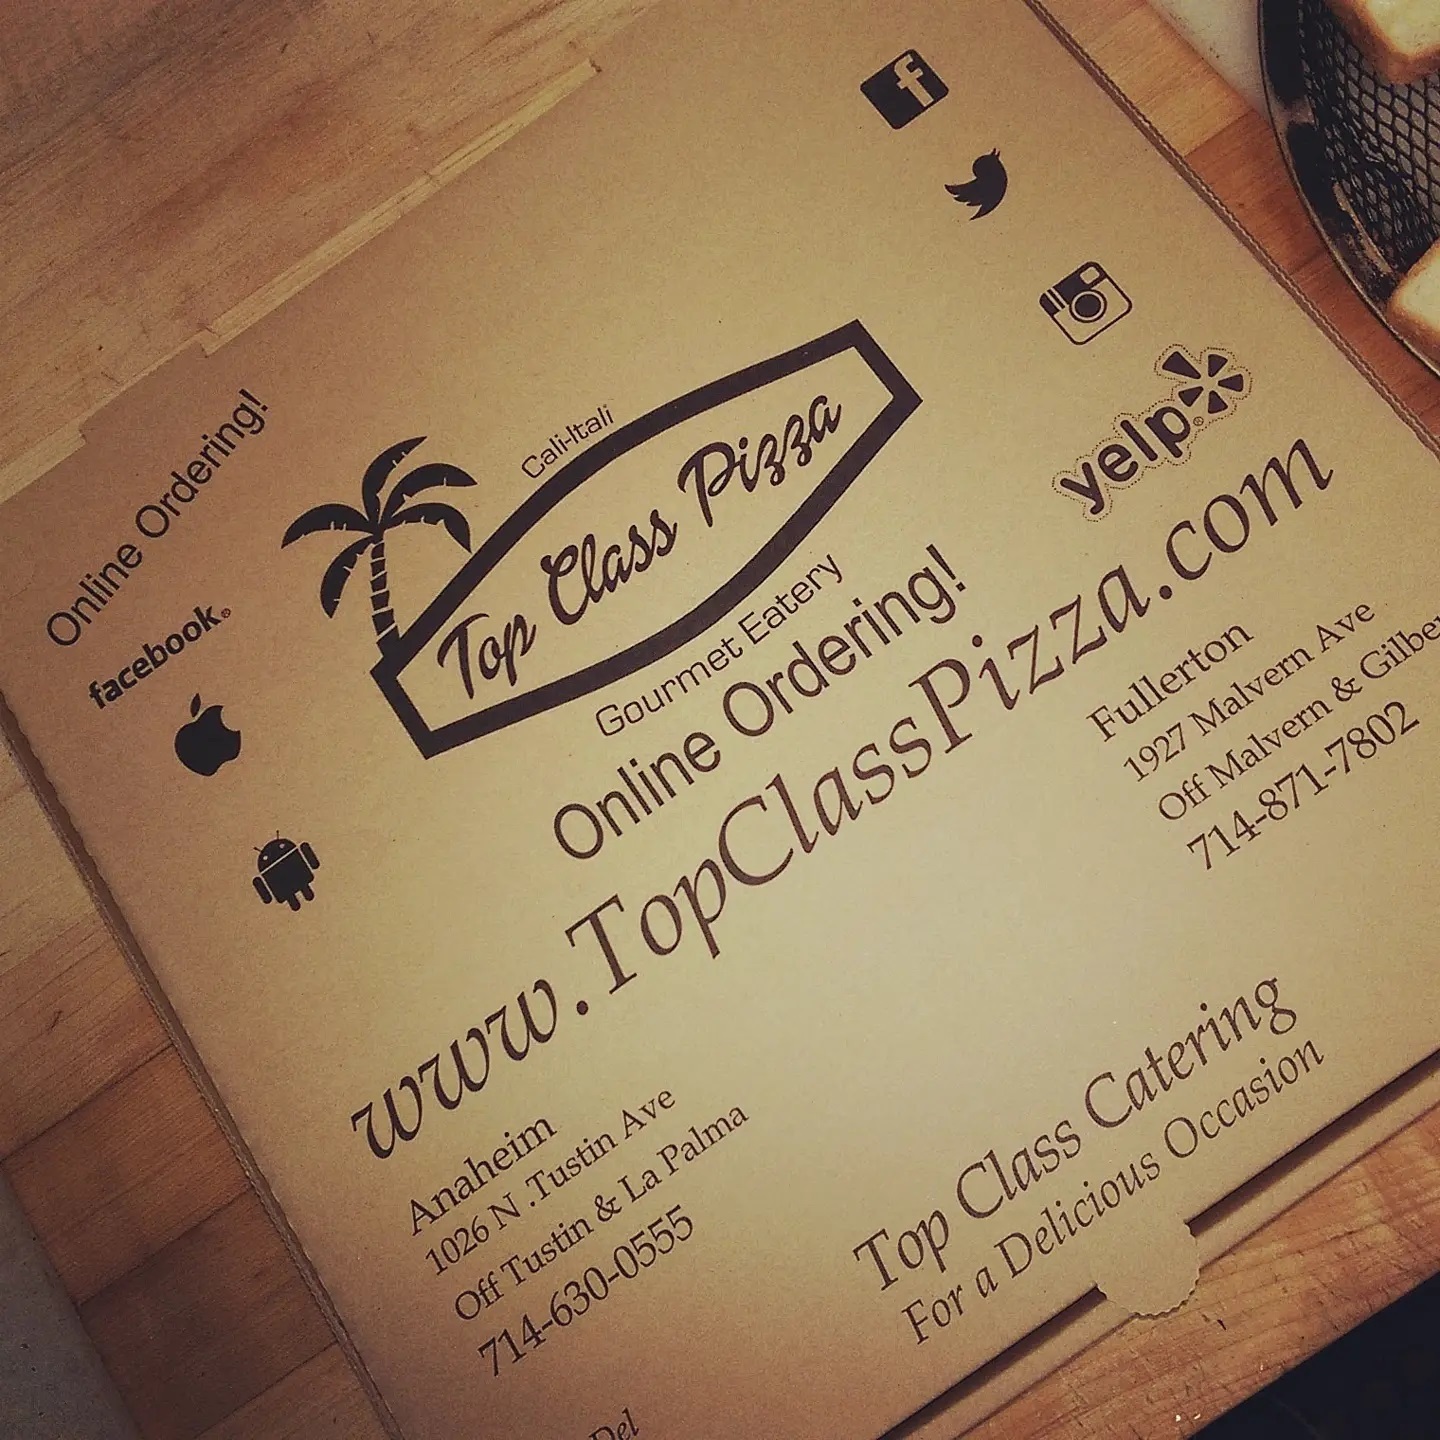 Online Ordering!
facebook®
Cali-Itali
Top Class Pizza
Gourmet Eatery
f
yelp®
Online Ordering!
www.TopClassPizza.com
Fullerton
1927 Malvern Ave
Off Malvern &
714-871-7802
Anaheim
1026 N .Tustin Ave
Off Tustin & La Palma
714-630-0555
Top Class Catering
For a Delicious Occasion